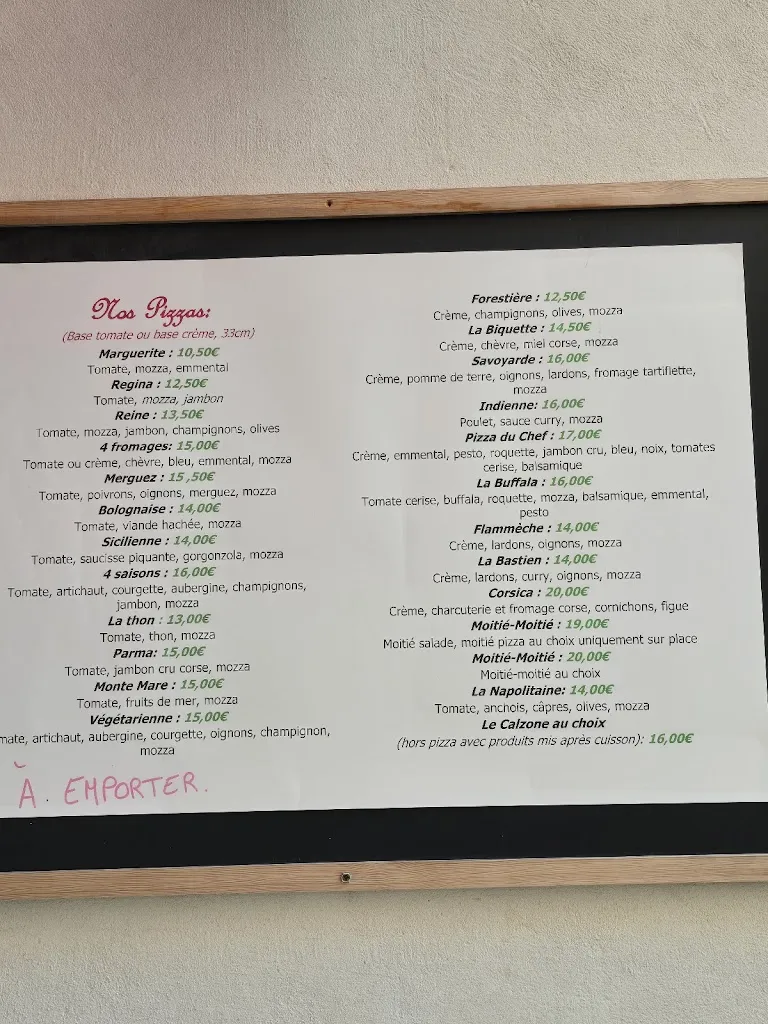 Nos Pizzas:
(Base tomate ou base crème, 33cm)
Marguerite : 10,50€
Tomate, mozza, emmental
Regina : 12,50€
Tomate, mozza, jambon
Reine : 13,50€
Tomate, mozza, jambon, champignons, olives
4 fromages: 15,00€
Tomate ou crème, chèvre, bleu, emmental, mozza
Merguez : 15,50€
Tomate, poivrons, oignons, merguez, mozza
Bolognaise : 14,00€
Tomate, viande hachée, mozza
Sicilienne : 14,00€
Tomate, saucisse piquante, gorgonzola, mozza
4 saisons : 16,00€
Tomate, artichaut, courgette, aubergine, champignons,
jambon, mozza
La thon : 13,00€
Tomate, thon, mozza
Parma: 15,00€
Tomate, jambon cru corse, mozza
Monte Mare : 15,00€
Tomate, fruits de mer, mozza
Végétarienne : 15,00€
mate, artichaut, aubergine, courgette, oignons, champignon,
mozza
À. EMPORTER.
Forestière : 12,50€
Crème, champignons, olives, mozza
La Biquette : 14,50€
Crème, chèvre, miel corse, mozza
Savoyarde : 16,00€
Crème, pomme de terre, oignons, lardons, fromage tartiflette,
mozza
Indienne: 16,00€
Poulet, sauce curry, mozza
Pizza du Chef : 17,00€
Crème, emmental, pesto, roquette, jambon cru, bleu, noix, tomates
cerise, balsamique
La Buffala : 16,00€
Tomate cerise, buffala, roquette, mozza, balsamique, emmental,
pesto
Flammèche : 14,00€
Crème, lardons, oignons, mozza
La Bastien : 14,00€
Crème, lardons, curry, oignons, mozza
Corsica : 20,00€
Crème, charcuterie et fromage corse, cornichons, figue
Moitié-Moitié : 19,00€
Moitié salade, moitié pizza au choix uniquement sur place
Moitié-Moitié : 20,00€
Moitié-moitié au choix
La Napolitaine: 14,00€
Tomate, anchois, câpres, olives, mozza
Le Calzone au choix
(hors pizza avec produits mis après cuisson): 16,00€